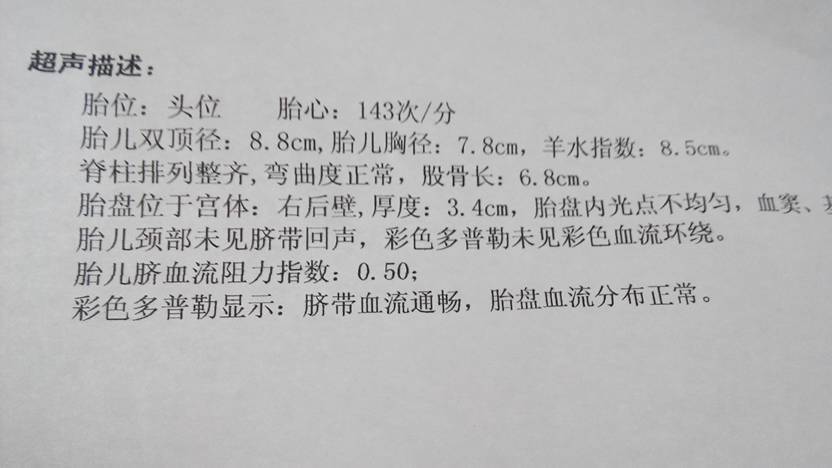 超声描述：
胎位：头位 胎心：143次/分
胎儿双顶径：8.8cm,胎儿胸径：7.8cm，羊水指数：8.5cm。
脊柱排列整齐,弯曲度正常，股骨长：6.8cm。
胎盘位于宫体：右后壁,厚度：3.4cm，胎盘内光点不均匀，血窦、
胎儿颈部未见脐带回声，彩色多普勒未见彩色血流环绕。
胎儿脐血流阻力指数：0.50；
彩色多普勒显示：脐带血流通畅，胎盘血流分布正常。